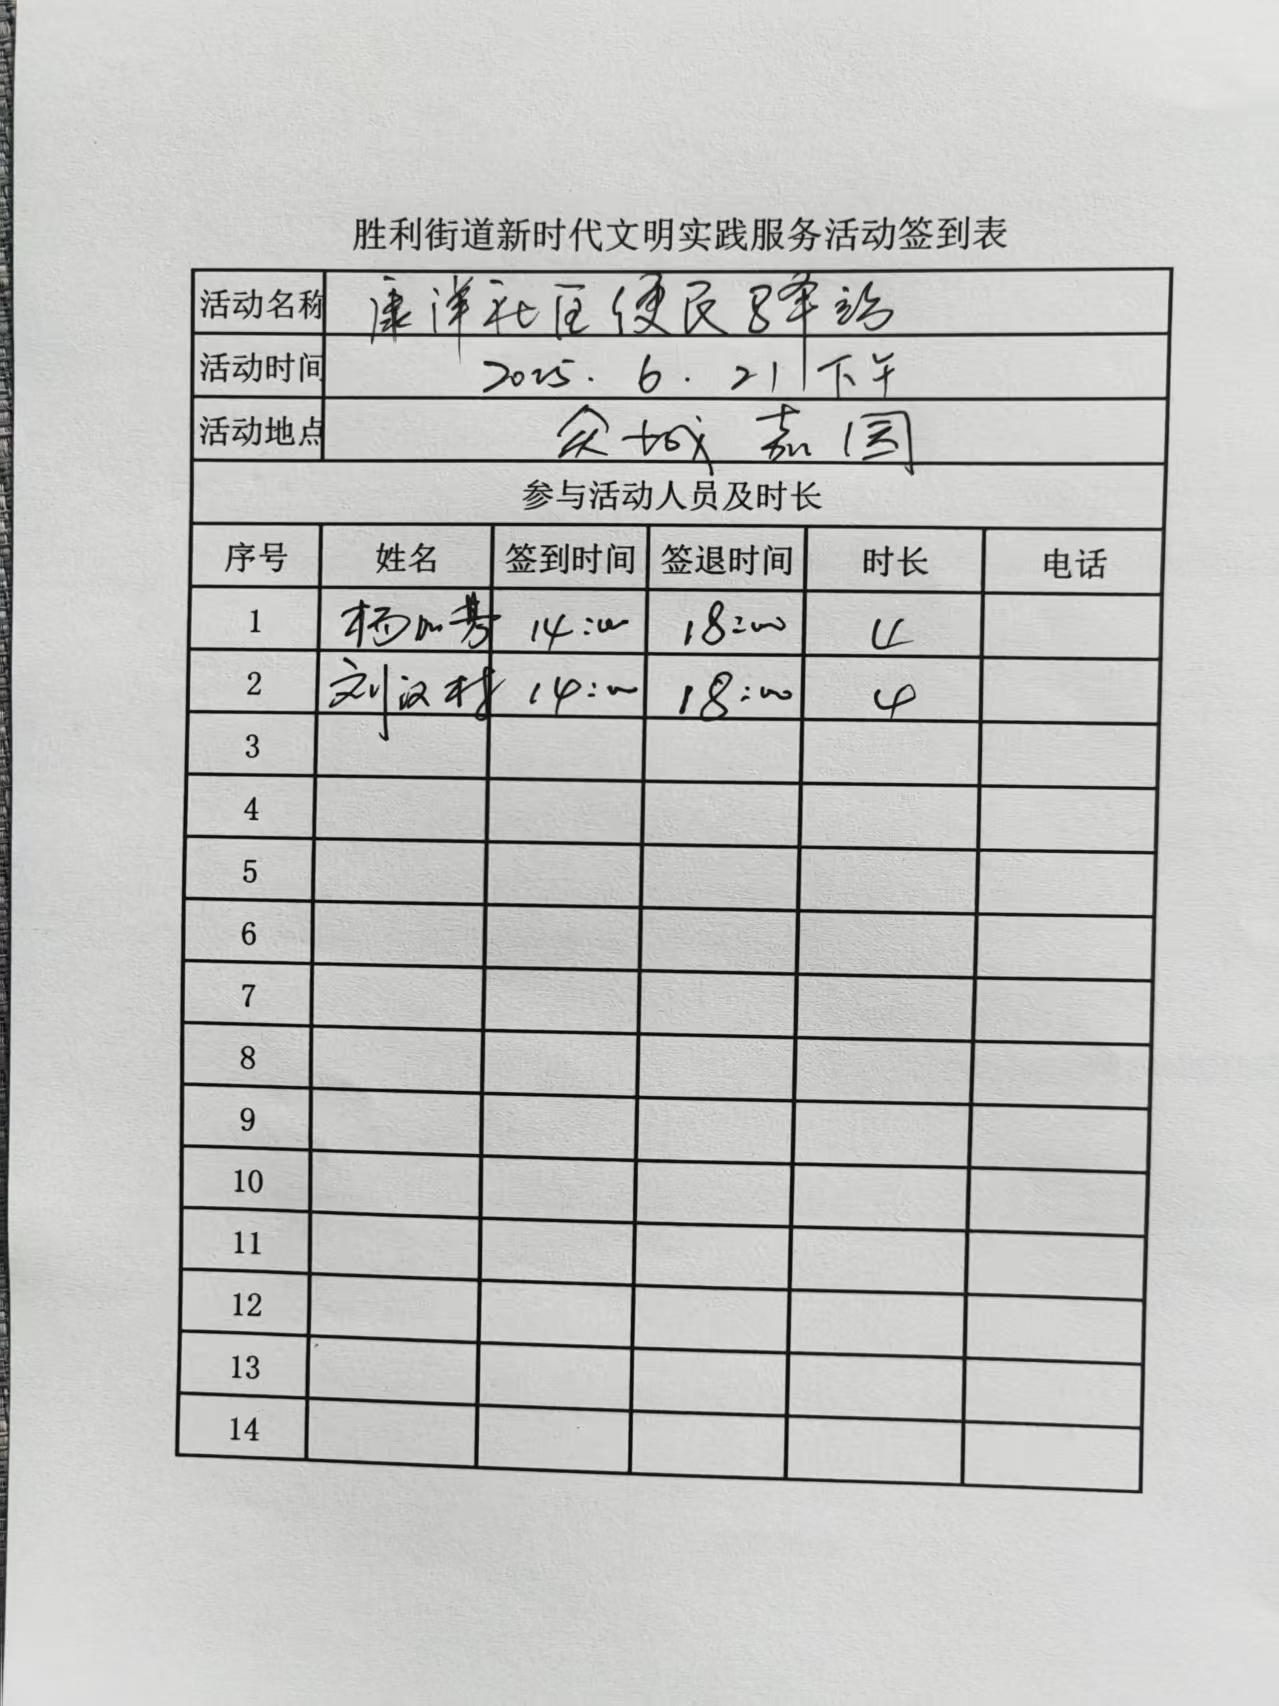 胜利街道新时代文明实践服务活动签到表
活动名称 康洋社区便民驿站
活动时间 2025.6.21下午
活动地点 众城嘉园
参与活动人员及时长
序号 姓名 签到时间 签退时间 时长 电话
1 杨 14:00 18:00 4
2 刘汉村 14:00 18:00 4
3
4
5
6
7
8
9
10
11
12
13
14